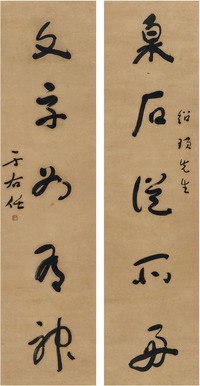 泉石從所好
紹先生
文字如有神
于右任